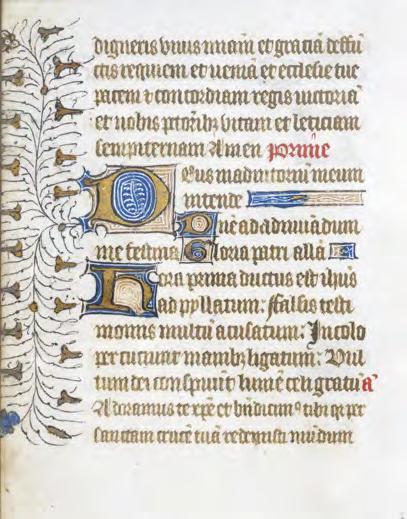 digneris viuis miam̄ et gratiā defūc
ctis requiem et ueniā et ecclesie tue
pacem ⁊ concordiam regis uictoriā
et nobis pctōrib; vitam et leticiam
sempiternam Amen prime
Deus in adiutorium meum
intende
Dn̄e ad adiuuādum
me festina Gloria patri allā
Hora prima ductus est ihūs
ad pyllatum: Falsis testi
moniis multū acusatum: In colo
percuciunt manib; ligatum: Vul
tum dei conspuunt lumē celi gratū a
Adoramus te xp̄e et bn̄dicim⁹ tibi qz per
sanctam crucē tuā redemisti mūdum